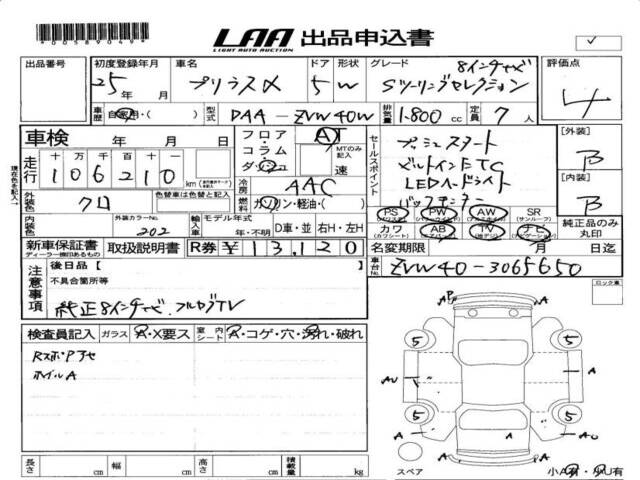 *00589049*
LAA 出品申込書
LIGHT AUTO AUCTION
出品番号 初度登録年月 車名 ドア 形状 グレード 評価点
8インチナビ
25年 月 プリウスα 5 W Sツーリングセレクション 4
車歴 自家用・( ) 型式 DAA-ZVW40W 排気量 1.800 cc 定員 7 人
車検 年 月 日
フロア・コラム・ダッシュ AT MTのみ記入 速
セールスポイント
プッシュスタート
ビルトインETC
LEDヘッドライト
バックモニター
[外装] B
[内装] B
現在色を記入→
走行 十 万 千 百 十 一
106210 km
冷房 AAC
外装色 クロ 色替車は色替と記入
燃料 ガソリン・軽油・( )
内装色 外装カラーNo. 202
輸入車 モデル年式 年・不明 D車・並 右H・左H
PS PW AW SR (サンルーフ)
カワ (カワシート) AB TV ナビ
純正品のみ丸印
新車保証書 取扱説明書 R券 ¥13,120
ディーラー捺印あるもの
名変期限 月 日迄
車台No. ZVW40-3065650
注意事項
後日品 [ ]
不具合箇所等
純正8インチナビ フルセグTV
ロック車
検査員記入 ガラス A・X要ス 室内シート A・コゲ・穴・汚れ・破れ
RスポPアセ
ホイルA
AP A
5 5
AU A
5 5
A A AU
A
スペア 小A有・小U有
長さ cm 幅 cm 高さ cm 積載量 kg